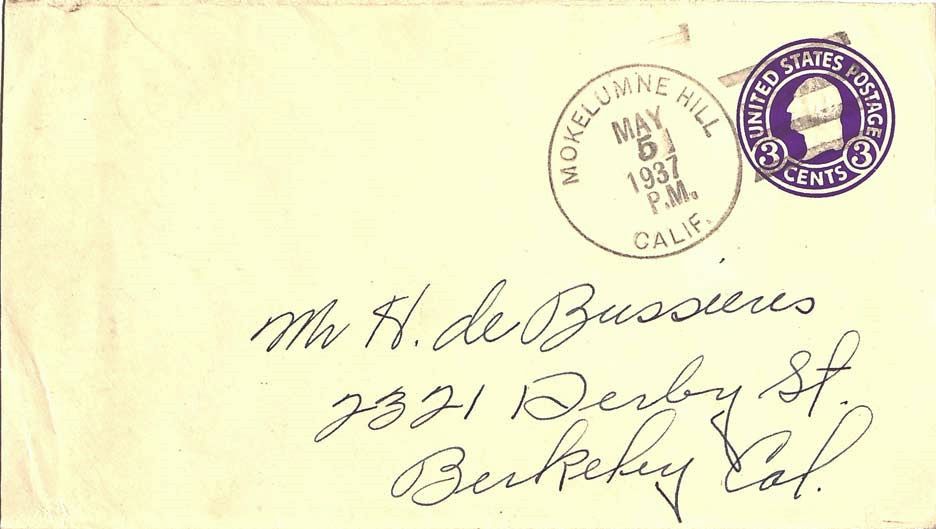 MOKELUMNE HILL
MAY
5
1937
P.M.
CALIF.
UNITED STATES POSTAGE
3 CENTS 3
Mr H. de Bussieres
2321 Derby St.
Berkeley Cal.